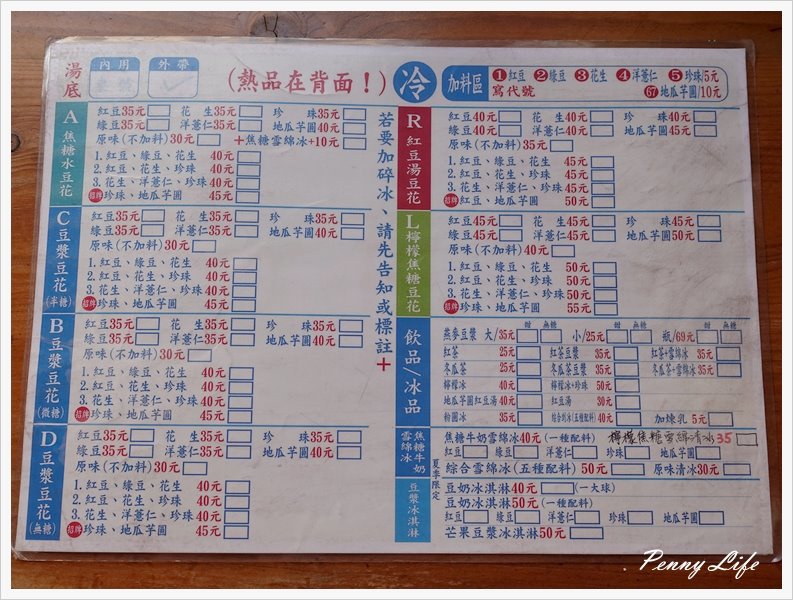 湯底
內用
外帶
(熱品在背面!)
冷
加料區
寫代號
1紅豆 2綠豆 3花生 4洋薏仁 5珍珠/5元
67地瓜芋圓/10元
A焦糖水豆花
紅豆35元 花 生35元 珍 珠35元
綠豆35元 洋薏仁35元 地瓜芋圓40元
原味(不加料)30元 +焦糖雪綿冰+10元
1.紅豆、綠豆、花生 40元
2.紅豆、花生、珍珠 40元
3.花生、洋薏仁、珍珠40元
招牌 珍珠、地瓜芋圓 45元
C豆漿豆花(半糖)
紅豆35元 花 生35元 珍 珠35元
綠豆35元 洋薏仁35元 地瓜芋圓40元
原味(不加料)30元
1.紅豆、綠豆、花生 40元
2.紅豆、花生、珍珠 40元
3.花生、洋薏仁、珍珠40元
招牌 珍珠、地瓜芋圓 45元
B豆漿豆花(微糖)
紅豆35元 花 生35元 珍 珠35元
綠豆35元 洋薏仁35元 地瓜芋圓40元
原味(不加料)30元
1.紅豆、綠豆、花生 40元
2.紅豆、花生、珍珠 40元
3.花生、洋薏仁、珍珠40元
招牌 珍珠、地瓜芋圓 45元
D豆漿豆花(無糖)
紅豆35元 花 生35元 珍 珠35元
綠豆35元 洋薏仁35元 地瓜芋圓40元
原味(不加料)30元
1.紅豆、綠豆、花生 40元
2.紅豆、花生、珍珠 40元
3.花生、洋薏仁、珍珠40元
招牌 珍珠、地瓜芋圓 45元
若要加碎冰、請先告知或標註+
R紅豆湯豆花
紅豆40元 花 生40元 珍 珠40元
綠豆40元 洋薏仁40元 地瓜芋圓45元
原味(不加料)35元
1.紅豆、綠豆、花生 45元
2.紅豆、花生、珍珠 45元
3.花生、洋薏仁、珍珠45元
招牌 紅豆、地瓜芋圓 50元
L檸檬焦糖豆花
紅豆45元 花 生45元 珍 珠45元
綠豆45元 洋薏仁45元 地瓜芋圓50元
原味(不加料)40元
1.紅豆、綠豆、花生 50元
2.紅豆、花生、珍珠 50元
3.花生、洋薏仁、珍珠50元
招牌 珍珠、地瓜芋圓 55元
飲品/冰品
甜 無糖 甜 無糖 甜 無糖
燕麥豆漿 大/35元 小/25元 瓶/69元
紅茶 25元 紅茶豆漿 35元 紅茶+雪綿冰 35元
冬瓜茶 25元 冬瓜茶豆漿 35元 冬瓜茶+雪綿冰 35元
檸檬冰 40元 檸檬冰+珍珠 50元
地瓜芋圓紅豆湯40元 紅豆湯 30元
粉圓冰 35元 綜合刨冰(五種配料)40元 加煉乳 5元
焦糖牛奶雪綿冰
夏季限定
焦糖牛奶雪綿冰40元(一種配料) 檸檬焦糖雪綿清冰35
紅豆 綠豆 洋薏仁 珍珠 地瓜芋圓
綜合雪綿冰(五種配料)50元 原味清冰30元
豆漿冰淇淋
豆奶冰淇淋40元 (一大球)
豆奶冰淇淋50元(一種配料)
紅豆 綠豆 洋薏仁 珍珠 地瓜芋圓
芒果豆漿冰淇淋50元
Penny Life